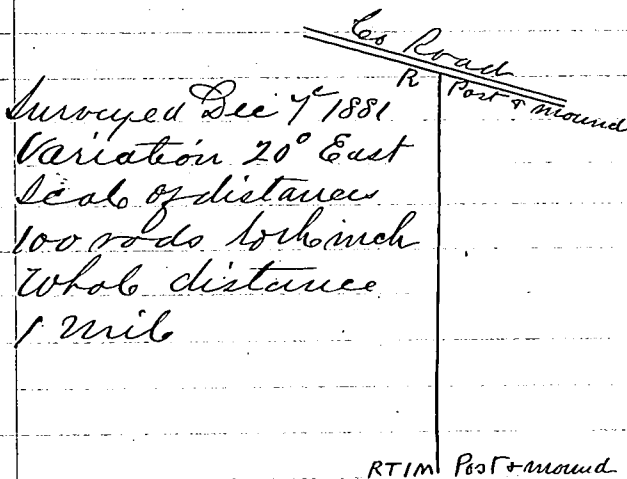 Co Road
R Post & mound
Surveyed Dec 7th 1881
Variation 20° East
Scale of distances
100 rods to the inch
Whole distance
1 Mile
RT1M Post & mound